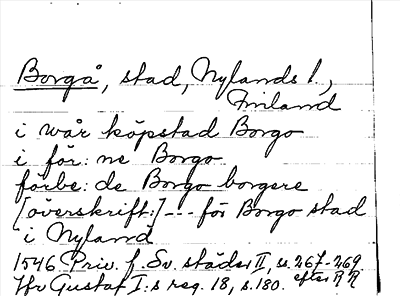 Borgå, stad, Nylands l.,
Finland
i wår köpstad Borgo
i för: ne Borgo
förbe: de Borgo borgere
[överskrift:] --- för Borgo stad
i Nyland
1546 Priv. f. Sv. städer II, ss. 267-269
Jfr Gustaf I:s reg. 18, s. 180. efter RR